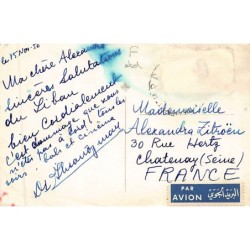 le 15/Nov. 50
Ma chère Alexandra
Sincères Salutations
du Liban
bien Cordialement
c'est dommage que vous
n'êtes pas à bord! tous les
soirs bals et cinéma
Mademoiselle
Alexandra Zitröen
30 Rue Hertz
Chatenay (Seine)
FRANCE
PAR AVION
البريد الجوي